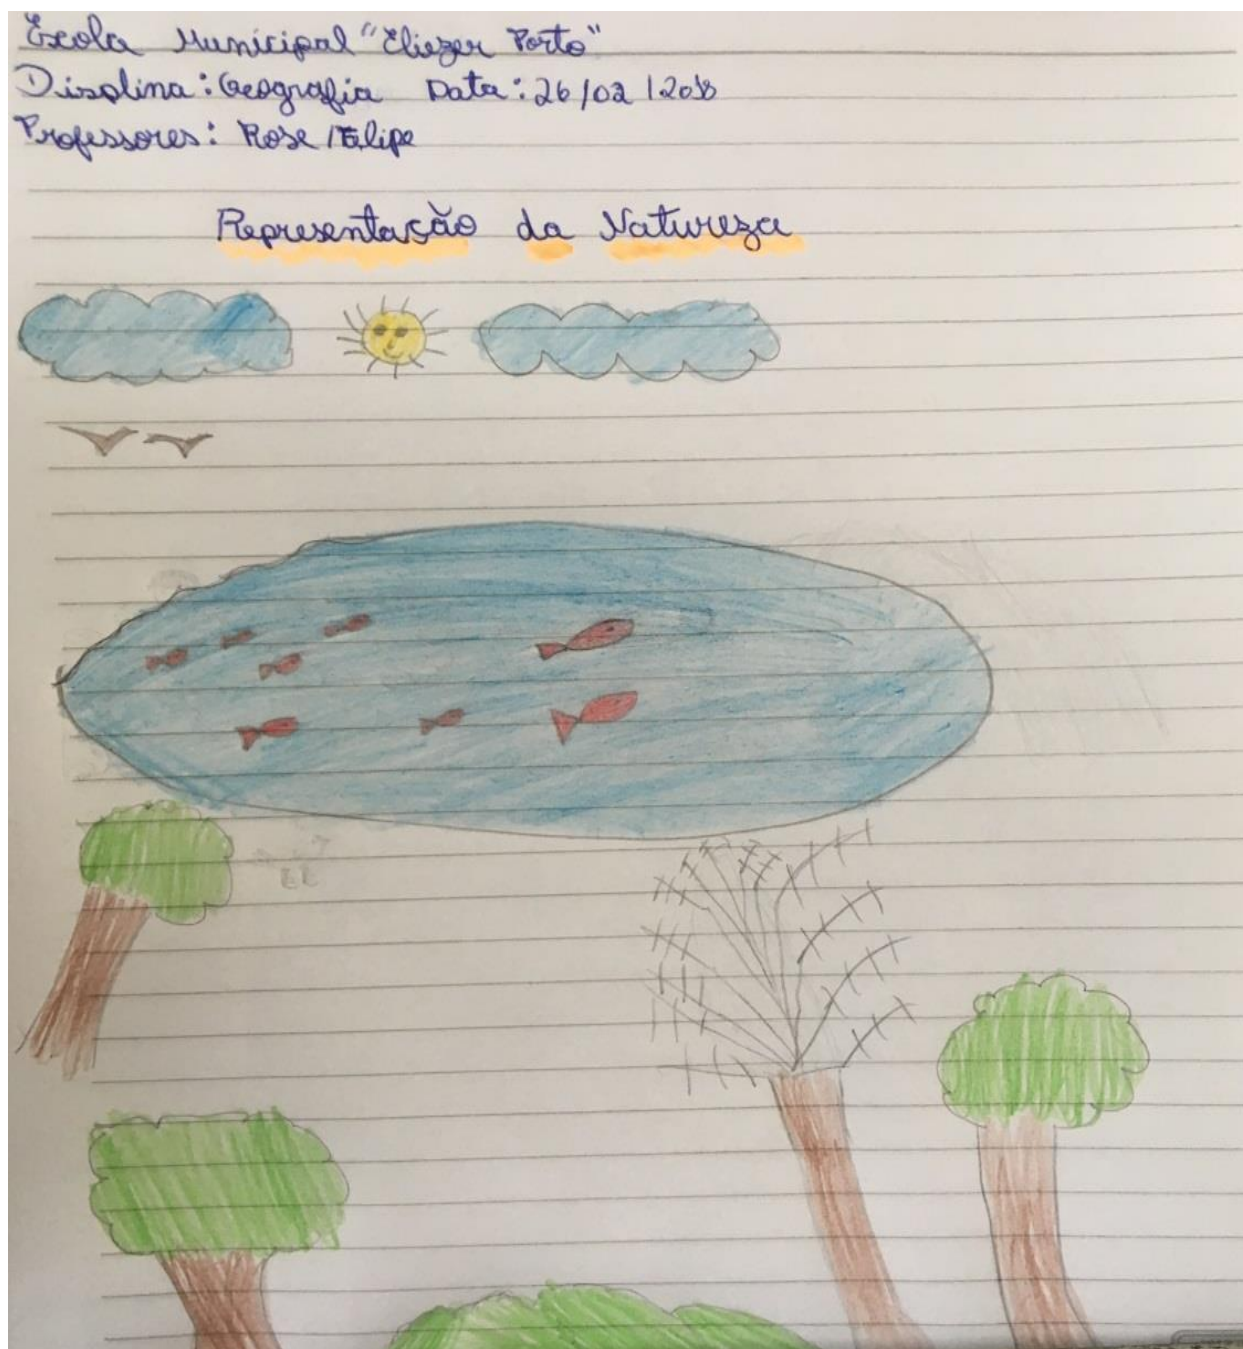 Escola Municipal "Eliezer Porto"
Disolina: Geografia Data: 26/02/2018
Professores: Rose /Felipe
Representação da Natureza